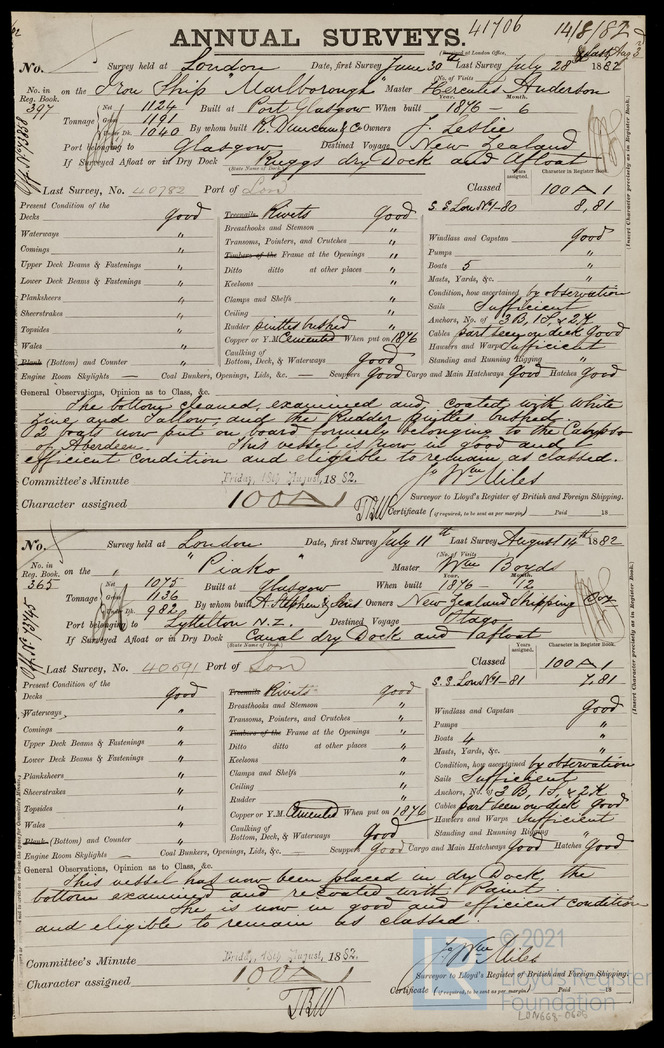 41706 14/8/82
ANNUAL SURVEYS.
(Received at London Office,
No. Survey held at London Date, first Survey June 30th Last Survey July 28th 1882
(No. of Visits
No. in Reg. Book. on the Iron Ship "Marlborough" Master Hercules Anderson
397 Tonnage Net 1124 Built at Port Glasgow When built Year. 1876 Month. 6
Gross 1191
Under Dk. 1040 By whom built R. Duncan & Co Owners J. Leslie
Port belonging to Glasgow Destined Voyage New Zealand
If Surveyed Afloat or in Dry Dock Ruggs dry Dock and Afloat
(State Name of Dock.)
Years assigned. Character in Register Book.
Last Survey, No. 40782 Port of Lon Classed 100 A 1
Present Condition of the S.S. Lon No1-80 8,81
Decks good Treenails Rivets good
Waterways " Breasthooks and Stemson " Windlass and Capstan Good
Comings " Transoms, Pointers, and Crutches " Pumps "
Upper Deck Beams & Fastenings " Timbers of the Frame at the Openings " Boats 5 "
Lower Deck Beams & Fastenings " Ditto ditto at other places " Masts, Yards, &c. "
Planksheers " Keelsons " Condition, how ascertained by observation
Sheerstrakes " Clamps and Shelfs " Sails Sufficient
Topsides " Ceiling " Anchors, No. of 3 B, 1 S, & 2 K
Wales " Rudder pintles bushed Cables part seen on deck Good
Plank (Bottom) and Counter " Copper or Y.M. Cemented When put on 1876 Hawsers and Warps Sufficient
Caulking of Bottom, Deck, & Waterways Good Standing and Running Rigging "
Engine Room Skylights — Coal Bunkers, Openings, Lids, &c. — Scuppers Good Cargo and Main Hatchways Good Hatches Good
General Observations, Opinion as to Class, &c.
The bottom cleaned, examined and coated with white
Zinc and Tallow, and the Rudder Pintles bushed.
2 boats now put on board formerly belonging to the Calypso
of Aberdeen. This vessel is now in good and
efficient condition and eligible to remain as classed.
Committee's Minute Friday, 18th August, 1882. Jo Wm Miles
Character assigned 100 A 1 Surveyor to Lloyd's Register of British and Foreign Shipping.
Certificate (if required, to be sent as per margin) Paid 18
No. Survey held at London Date, first Survey July 11th Last Survey August 14th 1882
(No. of Visits
No. in Reg. Book. on the "Piako" Master Wm Boyds
365 Tonnage Net 1075 Built at Glasgow When built Year. 1876 Month. 12
Gross 1136
Under Dk. 982 By whom built A. Stephen & Sons Owners New Zealand Shipping Coy
Port belonging to Lyttelton N.Z. Destined Voyage Otago
If Surveyed Afloat or in Dry Dock Canal dry Dock and Afloat
(State Name of Dock.)
Years assigned. Character in Register Book.
Last Survey, No. 40591 Port of Lon Classed 100 A 1
Present Condition of the S.S. Lon No1-81 7,81
Decks good Treenails Rivets good
Waterways " Breasthooks and Stemson " Windlass and Capstan Good
Comings " Transoms, Pointers, and Crutches " Pumps "
Upper Deck Beams & Fastenings " Timbers of the Frame at the Openings " Boats 4 "
Lower Deck Beams & Fastenings " Ditto ditto at other places " Masts, Yards, &c. "
Planksheers " Keelsons " Condition, how ascertained by observation
Sheerstrakes " Clamps and Shelfs " Sails Sufficient
Topsides " Ceiling " Anchors, No. of 3 B, 1 S, & 2 K
Wales " Rudder " Cables part seen on deck good
Plank (Bottom) and Counter " Copper or Y.M. Cemented When put on 1876 Hawsers and Warps Sufficient
Caulking of Bottom, Deck, & Waterways Good Standing and Running Rigging "
Engine Room Skylights — Coal Bunkers, Openings, Lids, &c. — Scuppers Good Cargo and Main Hatchways Good Hatches Good
General Observations, Opinion as to Class, &c.
This vessel has now been placed in dry Dock, the
bottom examined and recoated with Paint.
She is now in good and efficient condition
and eligible to remain as classed.
Committee's Minute Friday, 18th August, 1882. Jo Wm Miles
Character assigned 100 A 1 Surveyor to Lloyd's Register of British and Foreign Shipping.
Certificate (if required, to be sent as per margin) Paid 18
© 2021
Lloyd's Register
Foundation
LON668-0606